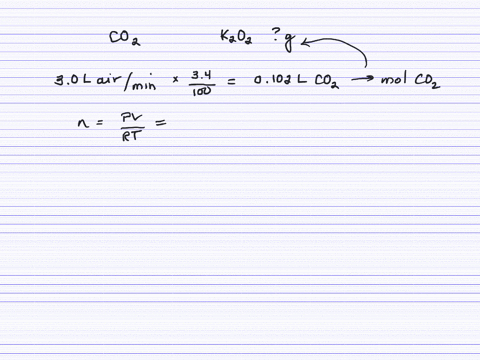 CO₂ K₂O₂ ? g
3.0 L air/min × 3.4/100 = 0.102 L CO₂ → mol CO₂
n = PV/RT =